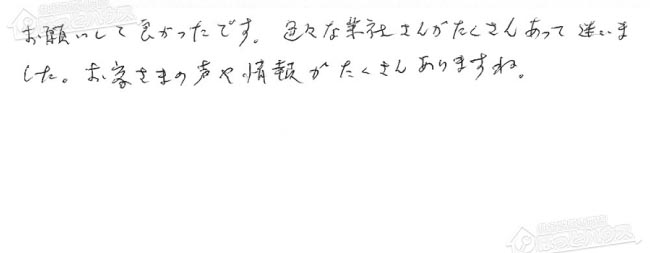 お願いして良かったです。色々な業社さんがたくさんあって迷いま
した。お客さまの声や情報がたくさんありますね。